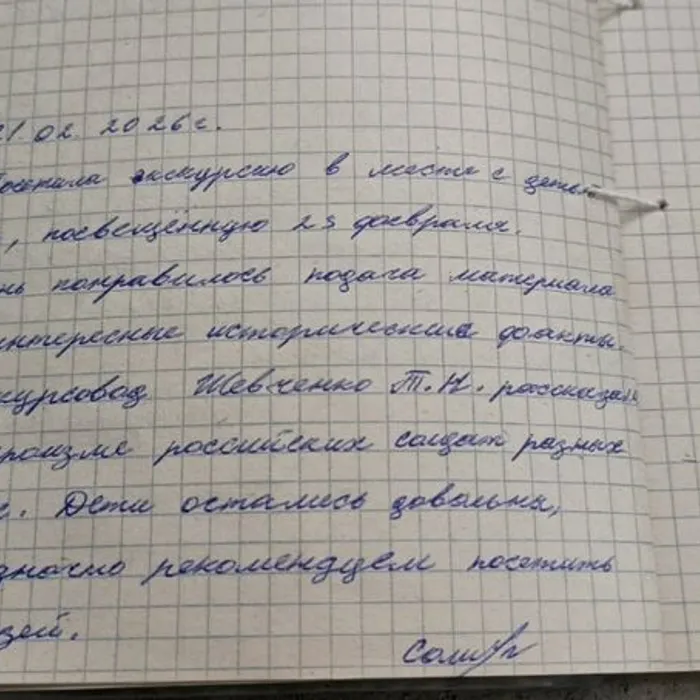 21.02.2026г.
Посетила экскурсию в месте с детьми
, посвещённую 23 февраля.
нь понравилось подача материала
интересные исторические факты.
курсовод Шевченко Т.Н. рассказала
ероизме российских солдат разных
с. Дети остались довольны,
значно рекомендуем посетить
узей.